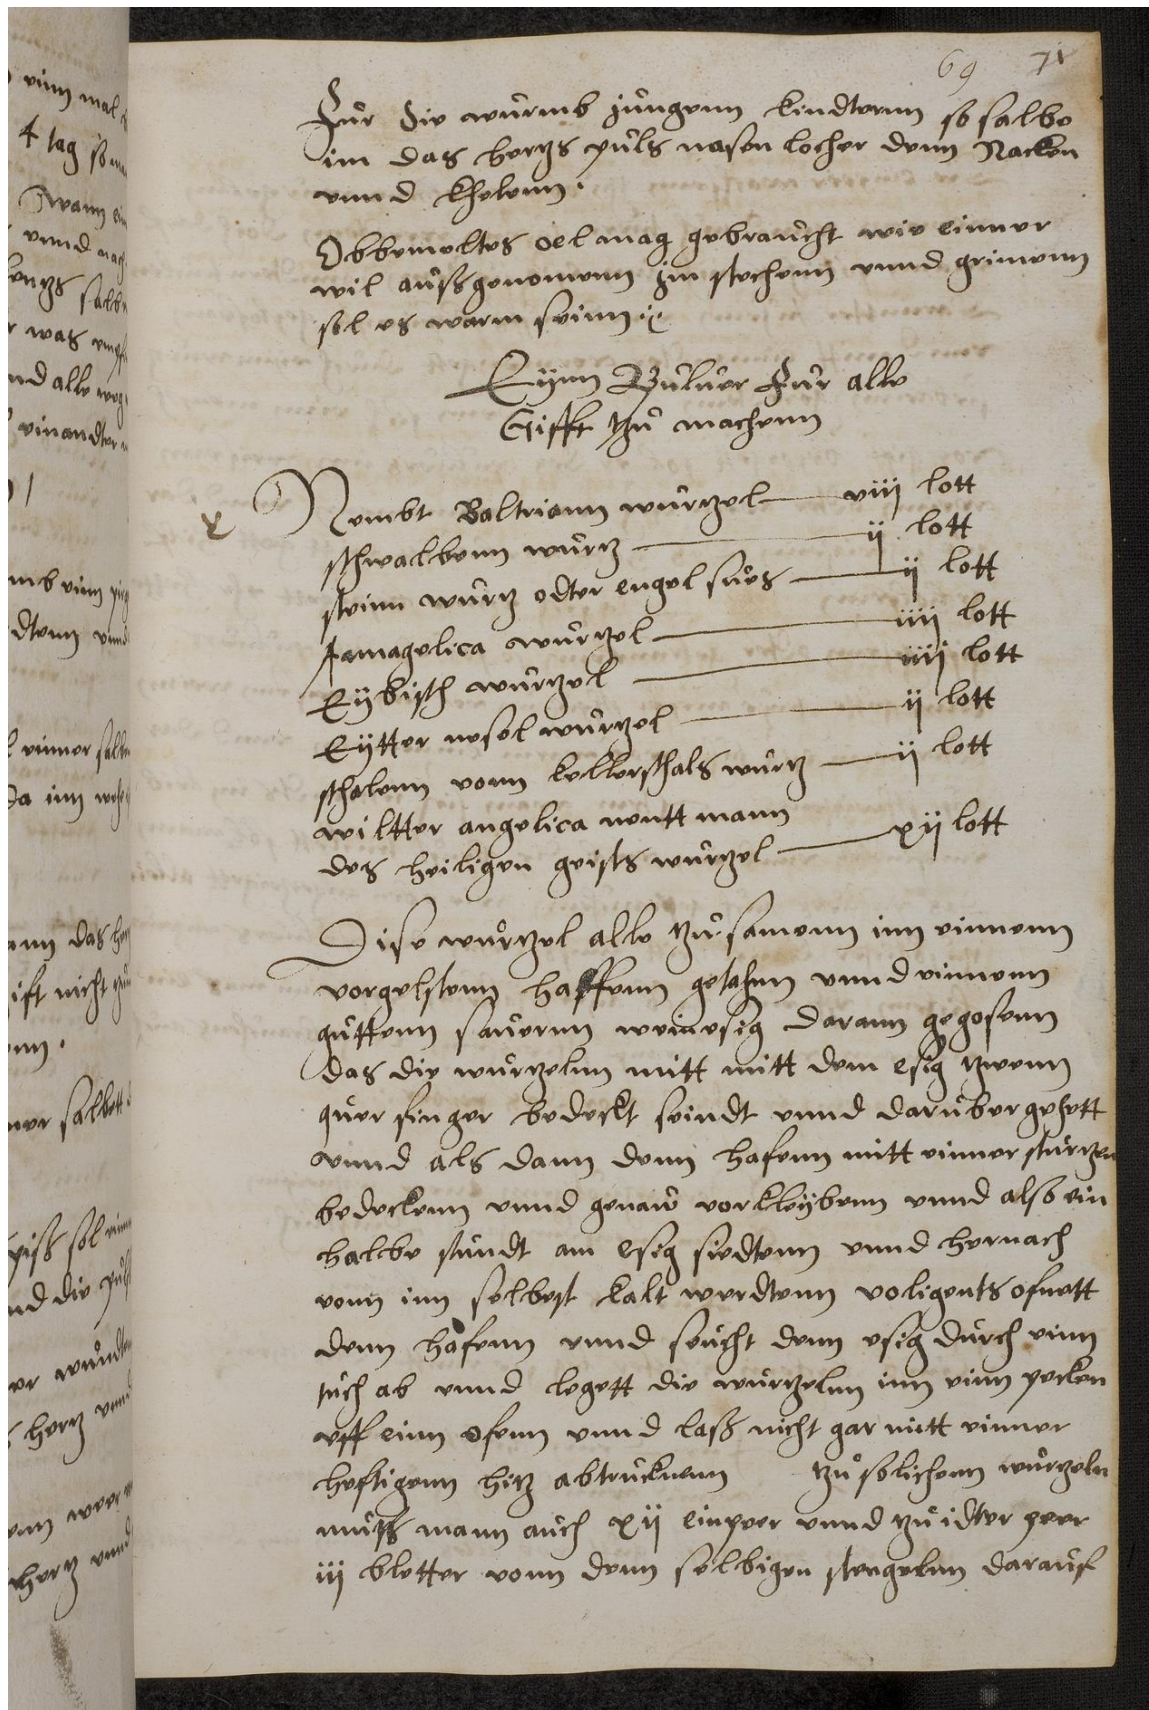 69 71
Für die würmb jüngenn kindternn so salbe
im das hertzs puls nasen locher denn Nacken
vnnd khelenn.
Obbemeltes oel mag gebraucht wie einner
wil aussgenomenn im stechenn vnnd grimenn
sol es warm seinn
Eÿnn Puluer Für alle
Gifft tzu machenn
Nembt Baltriann wurtzel viij lott
schwalbenn wurtz ij lott
steinn wurtz odter engel sues ij lott
Famagelica wurtzel iiij lott
Eÿbisch wurtzel iiij lott
Eÿtter nesel wurtzel ij lott
schalenn vonn kellerschals wurtz ij lott
wiltter angelica nentt mann
des heiligen geists wurtzel xij lott
Dise wurtzel alle tzu samenn inn einnenn
vorgelstenn haffenn gethann vnnd einnenn
guttenn sauernn weinesig darann gegosenn
das die wurtzelnn mitt mitt dem esig tzwenn
quer finger bedeckt seindt vnnd daruber gehett
vnnd als dann denn hafenn mitt einner sturtzen
bedeckenn vnnd genaw vorkleÿbenn vnnd also ein
halbe stundt am esig siedtenn vnnd hernach
vonn inn selbest kalt werdtenn voligents ofnett
denn hafenn vnnd seucht denn esig durch einn
tuch ab vnnd legett die wurtzelnn inn einn pecken
vff einn ofenn vnnd lass nicht gar mitt einner
heftigenn hitz abtrucknenn tzu solichenn wurtzeln
muss mann auch xij einper vnnd tzu idter peer
iij bletter vonn denn selbigen stengelnn darauf